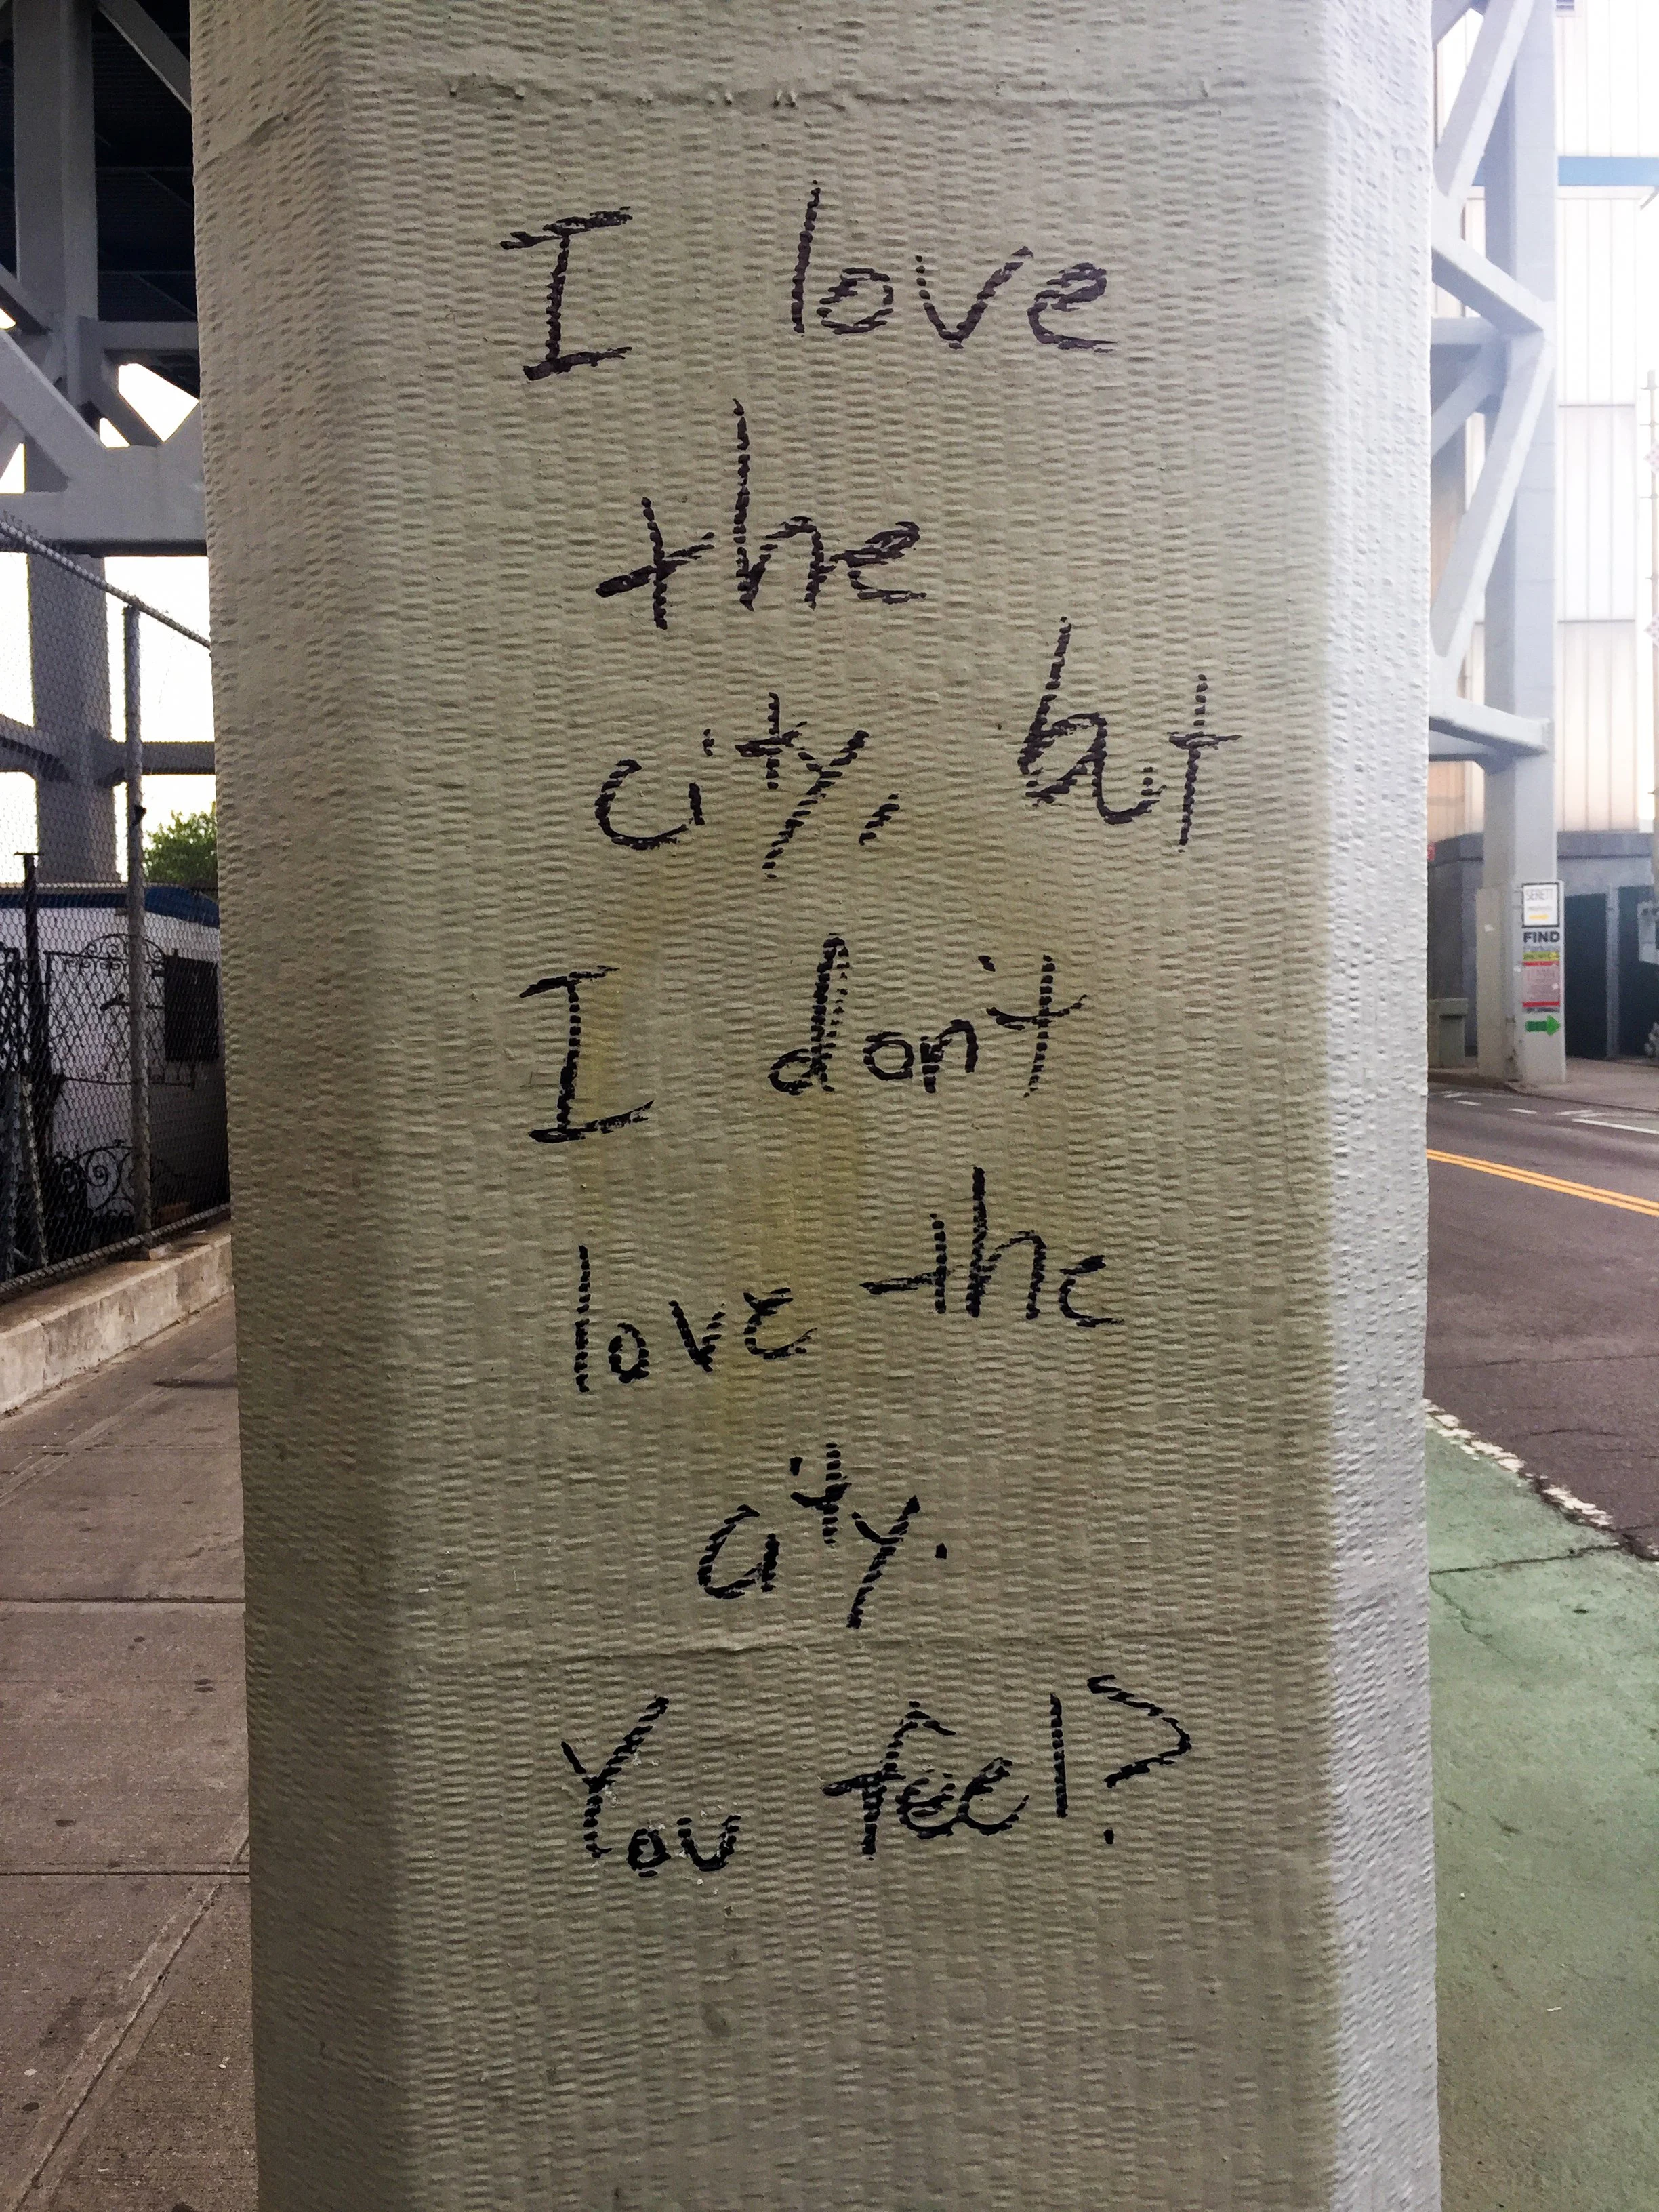 I love
the
city, but
I don't
love the
city.
You feel?
SERETT
FIND